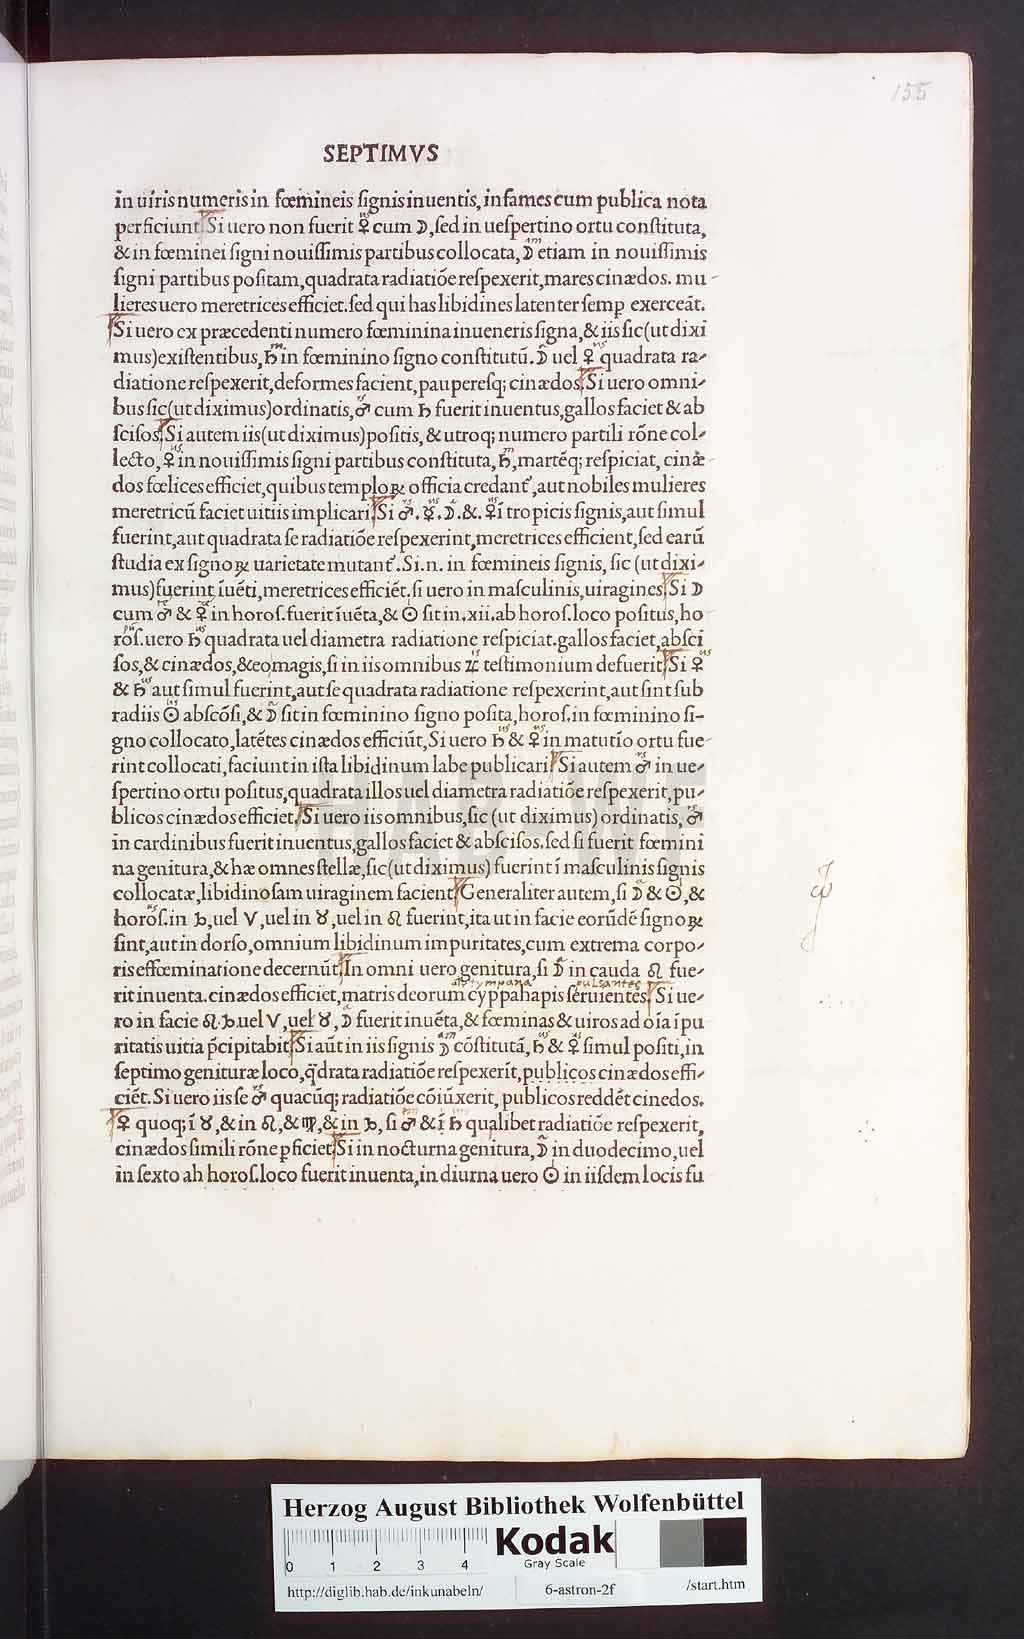 155
SEPTIMVS
in uiris numeris in fœmineis ſignis inuentis, infames cum publica nota
perficiunt. Si uero non fuerit ♀ cum ☽, ſed in ueſpertino ortu conſtituta,
& in fœminei ſigni nouiſſimis partibus collocata, ☽ etiam in nouiſſimis
ſigni partibus poſitam, quadrata radiatiōe reſpexerit, mares cinædos. mu-
lieres uero meretrices efficiet. ſed qui has libidines latenter ſemp exerceāt.
Si uero ex præcedenti numero fœminina inueneris ſigna, & iis ſic (ut dixi
mus) exiſtentibus, ♄ in fœminino ſigno conſtitutū. ☽ uel ♀ quadrata ra-
diatione reſpexerit, deformes facient, pauperesq; cinædos. Si uero omni-
bus ſic (ut diximus) ordinatis, ♂ cum ♄ fuerit inuentus, gallos faciet & ab
ſciſos. Si autem iis (ut diximus) poſitis, & utroq; numero partili rōne col-
lecto, ♀ in nouiſſimis ſigni partibus conſtituta, ♄, martēq; reſpiciat, cinæ-
dos fœlices efficiet, quibus temploꝝ officia credant᷑, aut nobiles mulieres
meretricū faciet uitiis implicari. Si ♂. ☿. ☽. &. ♀ ī tropicis ſignis, aut ſimul
fuerint, aut quadrata ſe radiatiōe reſpexerint, meretrices efficient, ſed earū
ſtudia ex ſignoꝝ uarietate mutant᷑. Si. n. in fœmineis ſignis, ſic (ut dixi-
mus) fuerint īuēti, meretrices efficiēt. ſi uero in maſculinis, uiragines. Si ☽
cum ♂ & ♀ in horoſ. fuerit īuēta, & ☉ ſit in. xii. ab horoſ. loco poſitus, ho
roſ. uero ♄ quadrata uel diametra radiatione reſpiciat. gallos faciet, abſci
ſos, & cinædos, & eo magis, ſi in iis omnibus ♃ teſtimonium defuerit. Si ♀
& ♄ aut ſimul fuerint, aut ſe quadrata radiatione reſpexerint, aut ſint ſub
radiis ☉ abſcōſi, & ☽ ſit in fœminino ſigno poſita, horoſ. in fœminino ſi-
gno collocato, latētes cinædos efficiūt, Si uero ♄ & ♀ in matutīo ortu fue-
rint collocati, faciunt in iſta libidinum labe publicari. Si autem ♂ in ue-
ſpertino ortu poſitus, quadrata illos uel diametra radiatiōe reſpexerit, pu-
blicos cinædos efficiet. Si uero iis omnibus, ſic (ut diximus) ordinatis, ♂
in cardinibus fuerit inuentus, gallos faciet & abſciſos. ſed ſi fuerit fœmini
na genitura, & hæ omnes ſtellæ, ſic (ut diximus) fuerint ī maſculinis ſignis
collocatæ, libidinoſam uiraginem facient. Generaliter autem, ſi ☽ & ☉, &
horoſ. in ♑, uel ♈, uel in ♉, uel in ♌ fuerint, ita ut in facie eorūdē ſignoꝝ
ſint, aut in dorſo, omnium libidinum impuritates, cum extrema corpo-
ris effœminatione decernūt. In omni uero genitura, ſi ☽ in cauda ♌ fue-
tympana pulsantes
rit inuenta. cinædos efficiet, matris deorum cyppahapis ſeruientes. Si ue-
ro in facie ♌. ♑. uel ♈, uel ♉, ☽ fuerit inuēta, & fœminas & uiros ad oīa īpu
ritatis uitia p̄cipitabit. Si aūt in iis ſignis ☽ cōſtitutā, ♄ & ♀ ſimul poſiti, in
ſeptimo genituræ loco, q̄drata radiatiōe reſpexerīt, publicos cinædos effi-
ciēt. Si uero iis ſe ♂ quacūq; radiatiōe cōiūxerit, publicos reddēt cinedos.
♀ quoq; ī ♉, & in ♌, & ♍, & in ♑, ſi ♂ & ī ♄ qualibet radiatiōe reſpexerit,
cinædos ſimili rōne ꝑficiet. Si in nocturna genitura, ☽ in duodecimo, uel
in ſexto ab horoſ. loco fuerit inuenta, in diurna uero ☉ in iiſdem locis fu
HAB WF
Herzog August Bibliothek Wolfenbüttel
Kodak
Gray Scale
0 1 2 3 4
http://diglib.hab.de/inkunabeln/ 6-astron-2f /start.htm